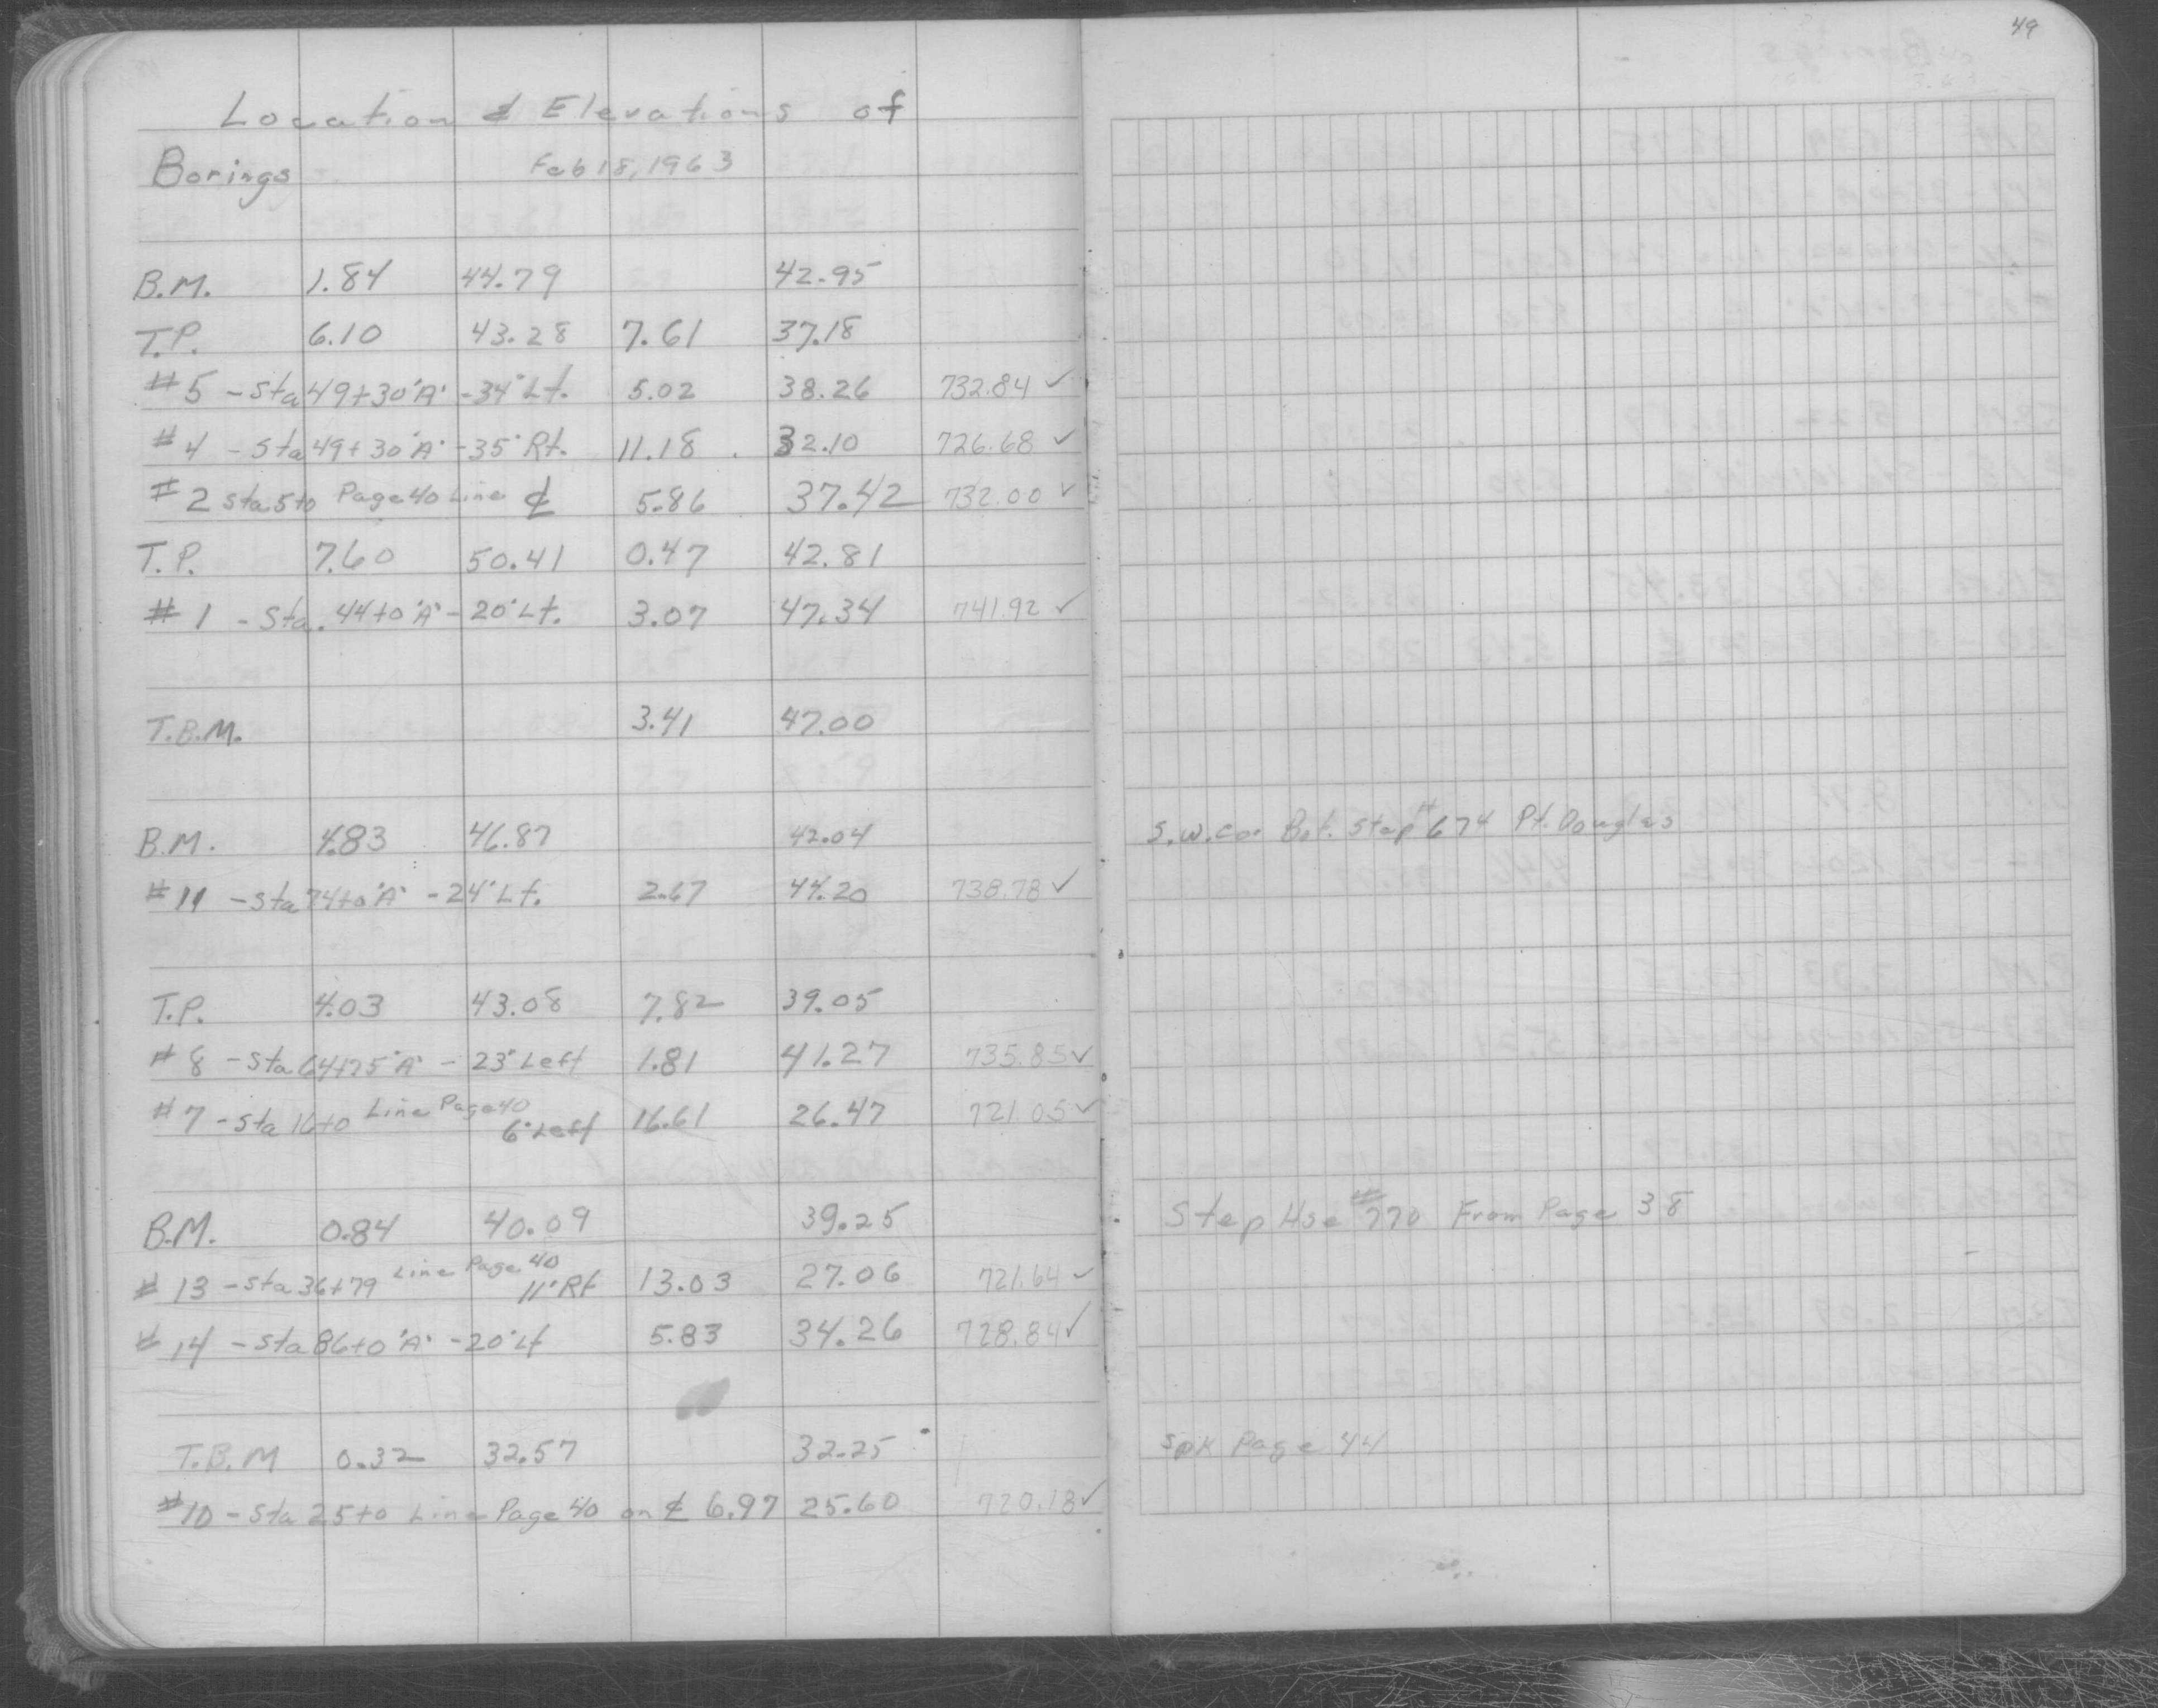 49
Location & Elevations of
Borings Feb 18, 1963
B.M. 1.84 44.79 42.95
T.P. 6.10 43.28 7.61 37.18
#5 - Sta 49+30 "A" - 34' Lt. 5.02 38.26 732.84 ✓
#4 - Sta 49+30 "A" - 35' Rt. 11.18 32.10 726.68 ✓
#2 Sta 5+0 Page 40 Line ₵ 5.86 37.42 732.00 ✓
T.P. 7.60 50.41 0.47 42.81
#1 - Sta. 44+0 "A" - 20' Lt. 3.07 47.34 741.92 ✓
T.B.M. 3.41 47.00
B.M. 4.83 46.87 42.04 S.W. Cor Bot. Step #674 Pt. Douglas
#11 - Sta 74+0 "A" - 24' Lt. 2.67 44.20 738.78 ✓
T.P. 4.03 43.08 7.82 39.05
#8 - Sta 64+25 "A" - 23' Left 1.81 41.27 735.85 ✓
#7 - Sta 16+0 Line Page 40 6' Left 16.61 26.47 721.05 ✓
B.M. 0.84 40.09 39.25 Step Hse #770 From Page 38
#13 - Sta 36+79 Line Page 40 11' Rt 13.03 27.06 721.64 ✓
#14 - Sta 86+0 "A" - 20' Lt 5.83 34.26 728.84 ✓
T.B.M 0.32 32.57 32.25 Spk Page 44
#10 - Sta 25+0 Line Page 40 on ₵ 6.97 25.60 720.18 ✓